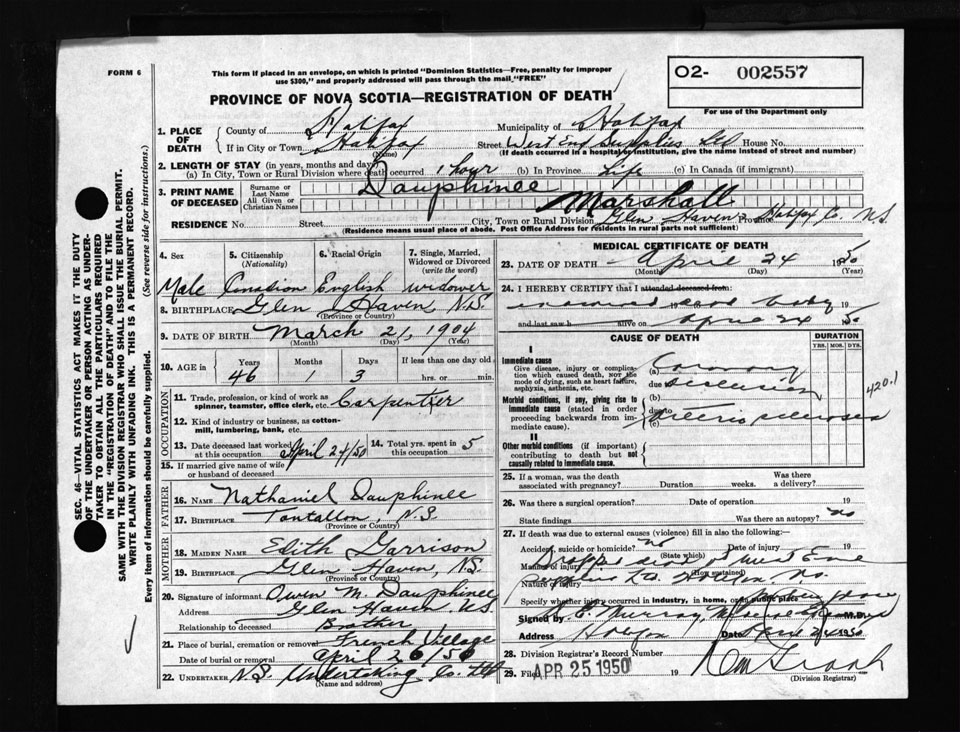 FORM 6
This form if placed in an envelope, on which is printed "Dominion Statistics—Free, penalty for improper
use $300," and properly addressed will pass through the mail "FREE"
O2- 002557
For use of the Department only
PROVINCE OF NOVA SCOTIA—REGISTRATION OF DEATH
1. PLACE OF DEATH
County of Halifax Municipality of Halifax
If in City or Town Halifax Street West End Supplies Ltd House No.
(Name) (If death occurred in a hospital or institution, give the name instead of street and number)
2. LENGTH OF STAY (in years, months and days)
(a) In City, Town or Rural Division where death occurred 1 hour (b) In Province Life (c) In Canada (if immigrant)
3. PRINT NAME OF DECEASED
Surname or Last Name Dauphinee
All Given or Christian Names Marshall
RESIDENCE No. Street City, Town or Rural Division Glen Haven Province Halifax Co. N.S.
(Residence means usual place of abode. Post Office Address for residents in rural parts not sufficient)
4. Sex
5. Citizenship (Nationality)
6. Racial Origin
7. Single, Married, Widowed or Divorced (write the word)
Male Canadian English widower
8. BIRTHPLACE Glen Haven N.S.
(Province or Country)
9. DATE OF BIRTH March 21, 1904
(Month) (Day) (Year)
10. AGE in Years Months Days If less than one day old
46 1 3 hrs. or min.
OCCUPATION
11. Trade, profession, or kind of work as
spinner, teamster, office clerk, etc. Carpenter
12. Kind of industry or business, as cotton-
mill, lumbering, bank, etc.
13. Date deceased last worked at this occupation April 24/50
14. Total yrs. spent in this occupation 5
15. If married give name of wife
or husband of deceased
FATHER
16. NAME Nathaniel Dauphinee
17. BIRTHPLACE Tantallon, N.S.
(Province or Country)
MOTHER
18. MAIDEN NAME Edith Garrison
19. BIRTHPLACE Glen Haven, N.S.
(Province or Country)
20. Signature of informant Owen M. Dauphinee
Address Glen Haven N.S.
Relationship to deceased Brother
21. Place of burial, cremation or removal French Village
Date of burial or removal April 26/50
22. UNDERTAKER N.S. Undertaking Co. Ltd
(Name and address)
MEDICAL CERTIFICATE OF DEATH
23. DATE OF DEATH April 24 1950
(Month) (Day) (Year)
24. I HEREBY CERTIFY that I attended deceased from:
body 19
and last saw h alive on April 24 1950
CAUSE OF DEATH
DURATION
YRS. MOS. DYS.
I
Immediate cause
Give disease, injury or complica-
tion which caused death, NOT the
mode of dying, such as heart failure,
asphyxia, asthenia, etc.
(a) Coronary
due occlusion
420.1
Morbid conditions, if any, giving rise to
immediate cause (stated in order
proceeding backwards from im-
mediate cause).
(b)
due to
(c) Arterio sclerosis
II
Other morbid conditions (if important)
contributing to death but not
causally related to immediate cause.
25. If a woman, was the death
associated with pregnancy? Duration weeks. Was there a delivery?
26. Was there a surgical operation? Date of operation 19
State findings Was there an autopsy? no
27. If death was due to external causes (violence) fill in also the following:—
Accident, suicide or homicide? no Date of injury 19
(State which)
Manner of injury dropped dead at West End
(How sustained)
Nature of injury
Specify whether injury occurred in industry, in home, or in public place
Signed by Murray, Medical M.D.
Address Halifax Date April 24 1950
28. Division Registrar's Record Number
29. Filed APR 25 1950 19
(Division Registrar)
SEC. 46—VITAL STATISTICS ACT MAKES IT THE DUTY
OF THE UNDERTAKER OR PERSON ACTING AS UNDER-
TAKER TO OBTAIN ALL THE PARTICULARS REQUIRED
IN THE "REGISTRATION OF DEATH" AND TO FILE THE
SAME WITH THE DIVISION REGISTRAR WHO SHALL ISSUE THE BURIAL PERMIT.
WRITE PLAINLY WITH UNFADING INK. THIS IS A PERMANENT RECORD.
Every item of information should be carefully supplied. (See reverse side for instructions.)